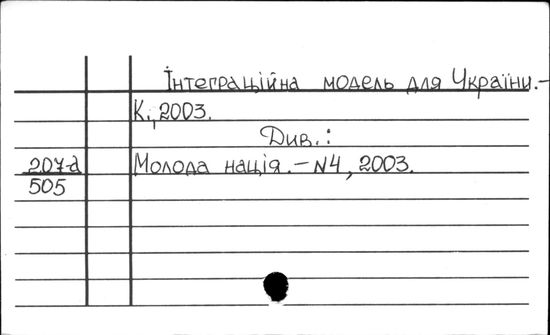 Інтеграційна модель для України.–
К., 2003.
Див.:
207-д
505
Молода нація.–N4, 2003.